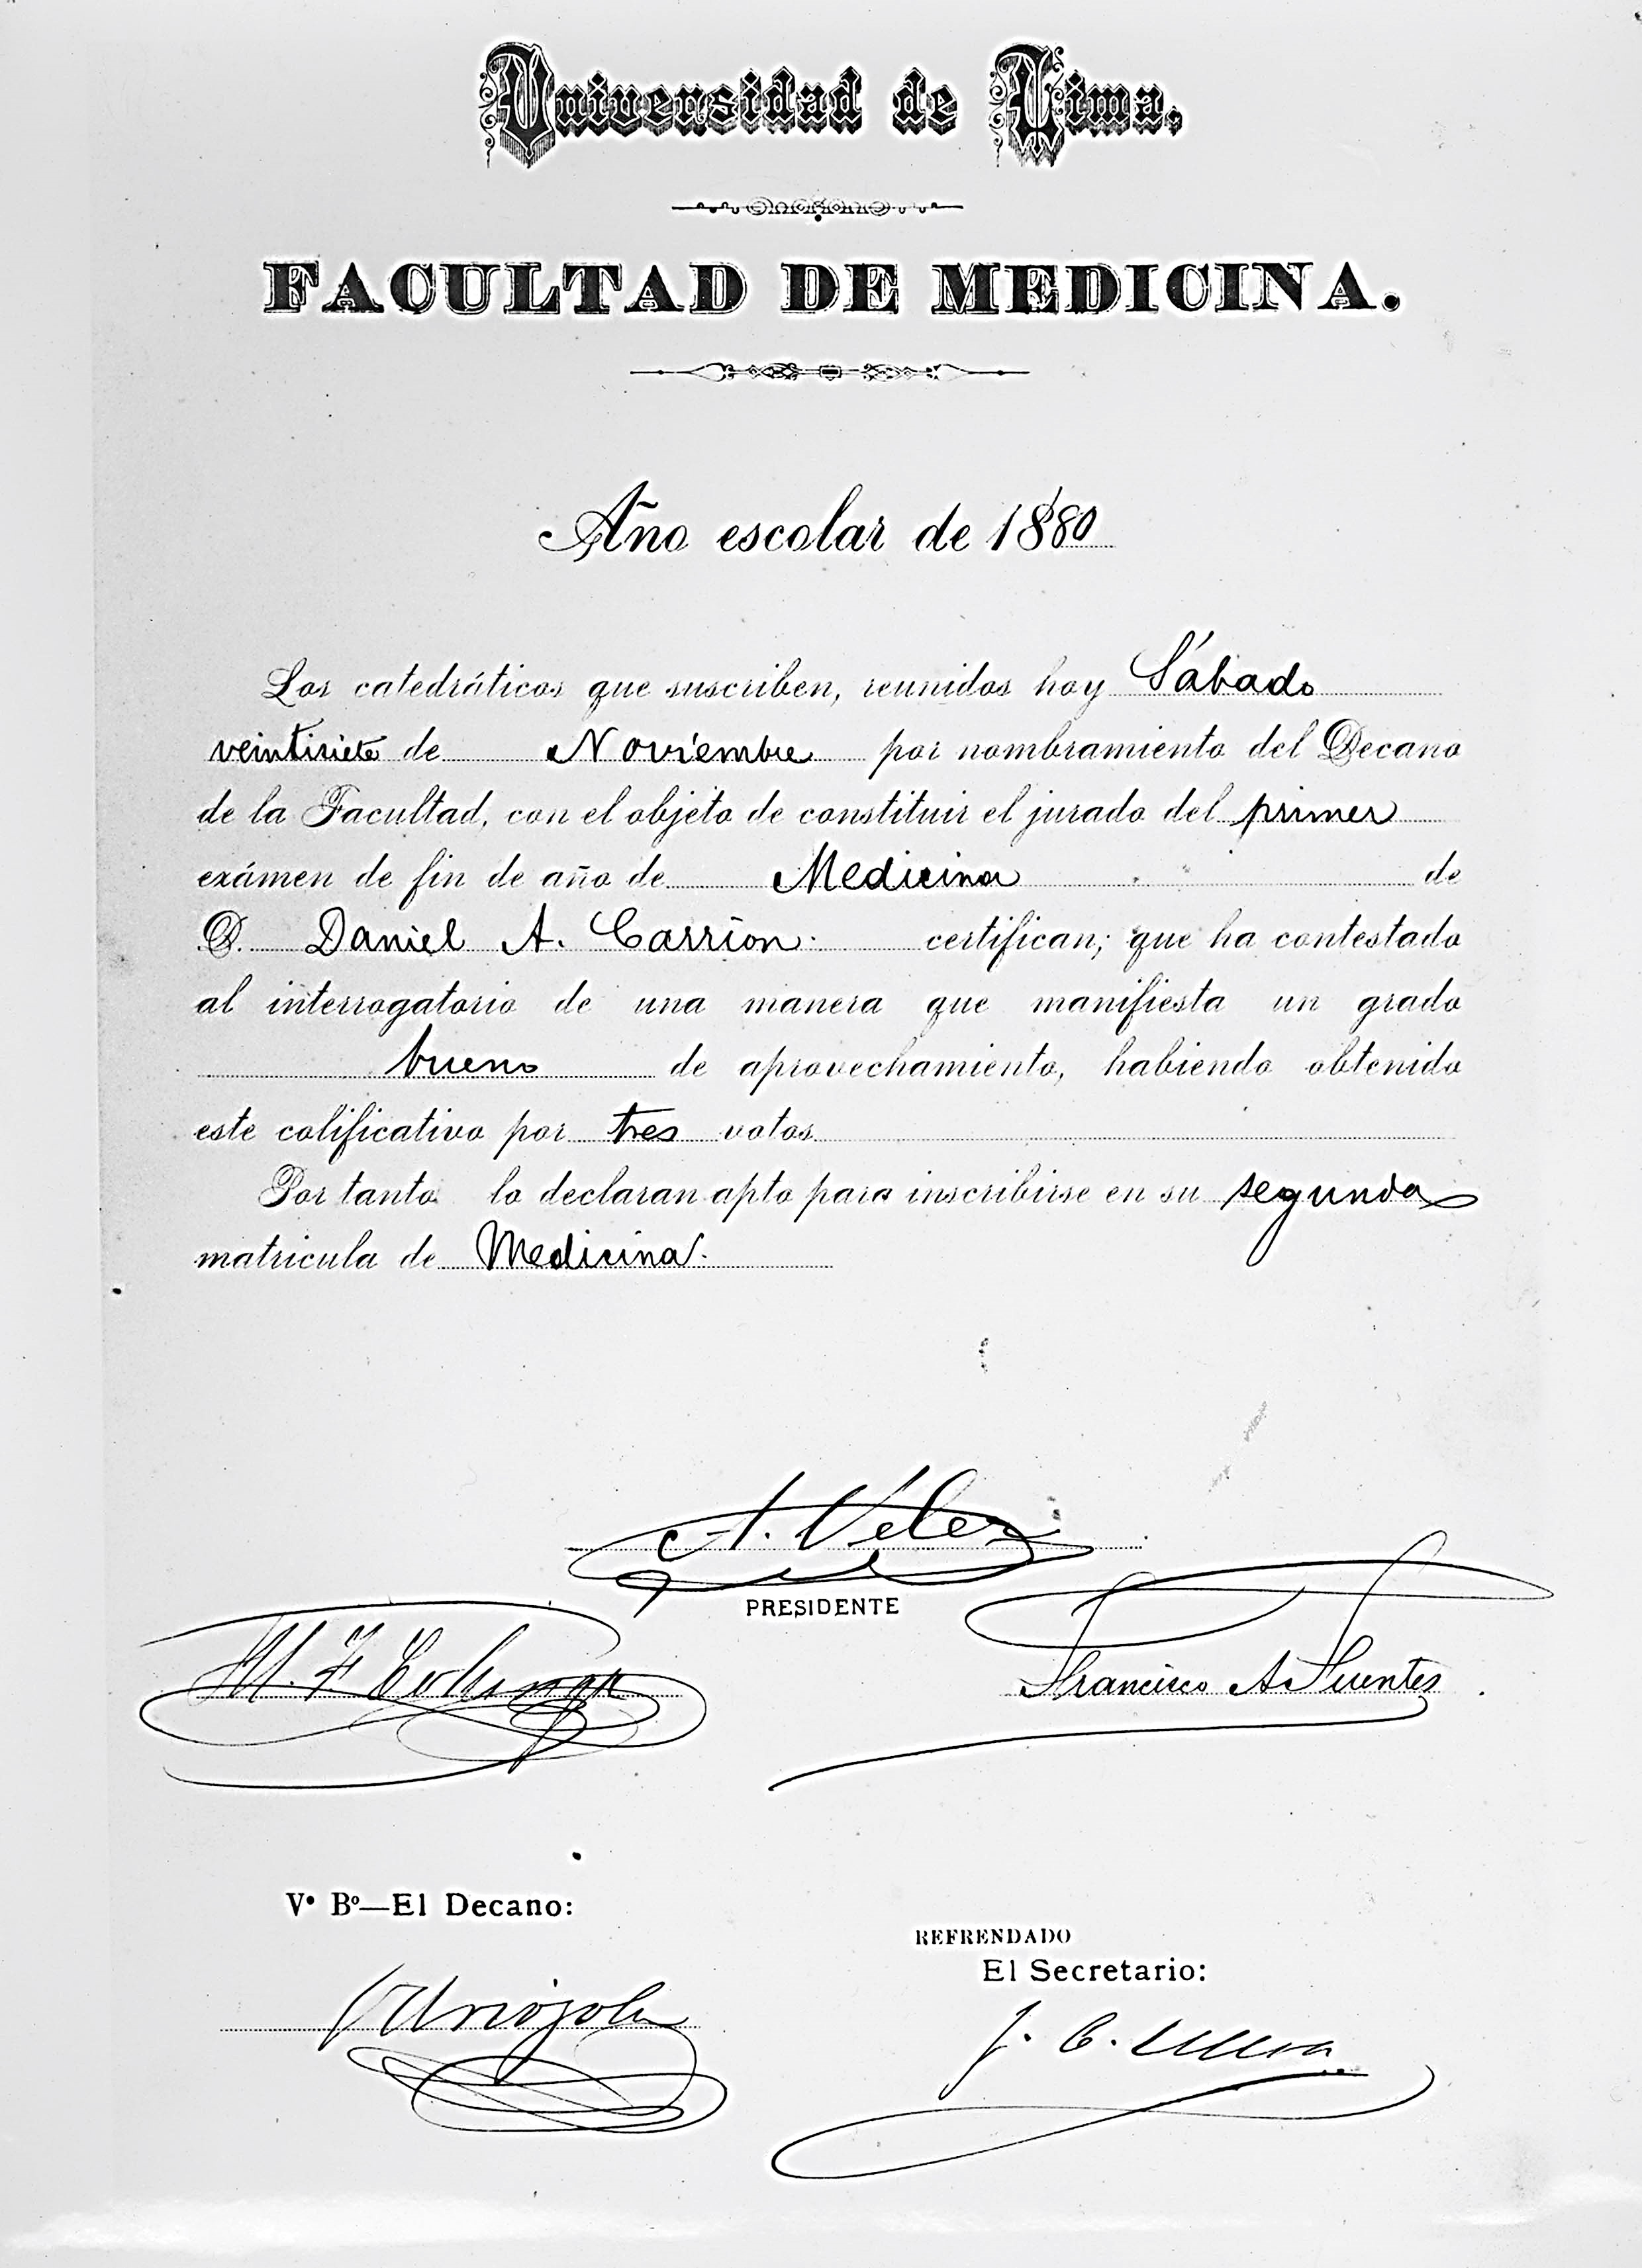 Universidad de Lima.
FACULTAD DE MEDICINA.
Año escolar de 1880
Los catedráticos que suscriben, reunidos hoy Sábado
veintisiete de Noviembre por nombramiento del Decano
de la Facultad, con el objeto de constituir el jurado del primer
exámen de fin de año de Medicina de
D. Daniel A. Carrion. certifican; que ha contestado
al interrogatorio de una manera que manifiesta un grado
bueno de aprovechamiento, habiendo obtenido
este calificativo por tres votos
Por tanto lo declaran apto para inscribirse en su segunda
matricula de Medicina.
A. Velez
PRESIDENTE
M. F.
Francisco A. Fuentes
Vº Bº—El Decano:
REFRENDADO
El Secretario:
J. C. Ulloa